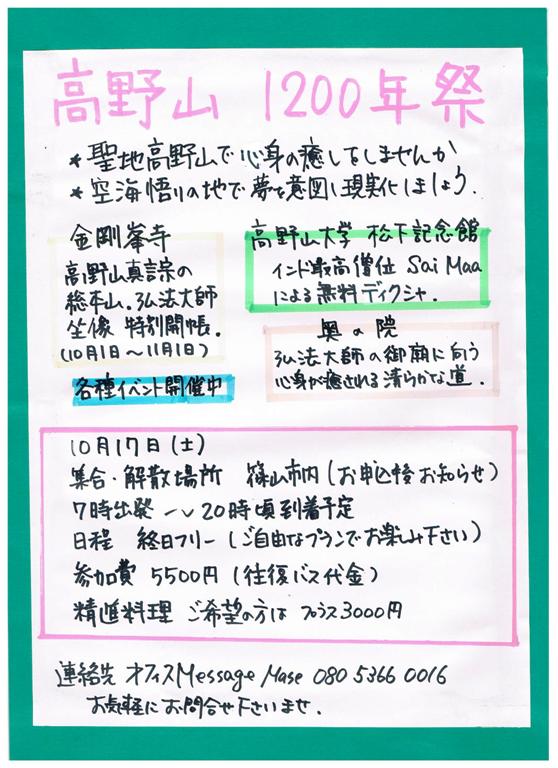 高野山 1200年祭
* 聖地高野山で心身の癒しをしませんか
* 空海悟りの地で夢を意図し現実化しましょう.
金剛峯寺
高野山真言宗の
総本山.弘法大師
坐像 特別開帳.
(10月1日〜11月1日)
各種イベント開催中
高野山大学 松下記念館
インド最高僧位 Sai Maa
による無料ディクシャ.
奥の院
弘法大師の御廟に向う
心身が癒される清らかな道.
10月17日(土)
集合・解散場所 篠山市内(お申込後お知らせ)
7時出発 〜 20時頃到着予定
日程 終日フリー(ご自由なプランでお楽しみ下さい)
参加費 5500円(往復バス代金)
精進料理 ご希望の方は プラス3000円
連絡先 オフィスMessage Mase 080 5366 0016
お気軽にお問合せ下さいませ.